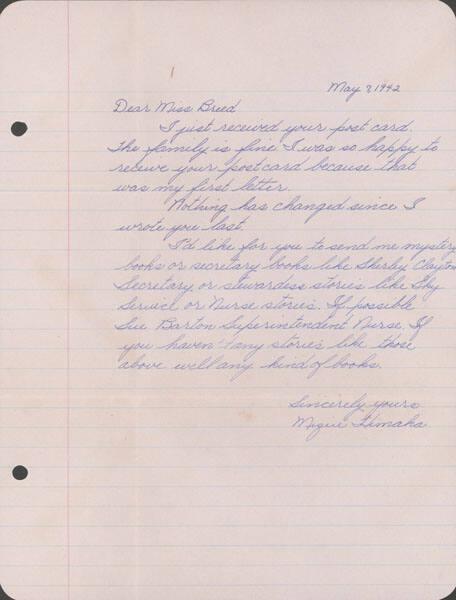 May 7, 1942
Dear Miss Breed
I just received your post card.
The family is fine I was so happy to
receive your postcard because that
was my first letter.
Nothing has changed since I
wrote you last.
I'd like for you to send me mystery
books or secretary books like Shirley Clayton
Secretary, or stewardess stories like Sky
Service or Nurse stories. If possible
Sue Barton Superintendent Nurse. If
you haven't any stories like those
above well any kind of books.
Sincerely yours